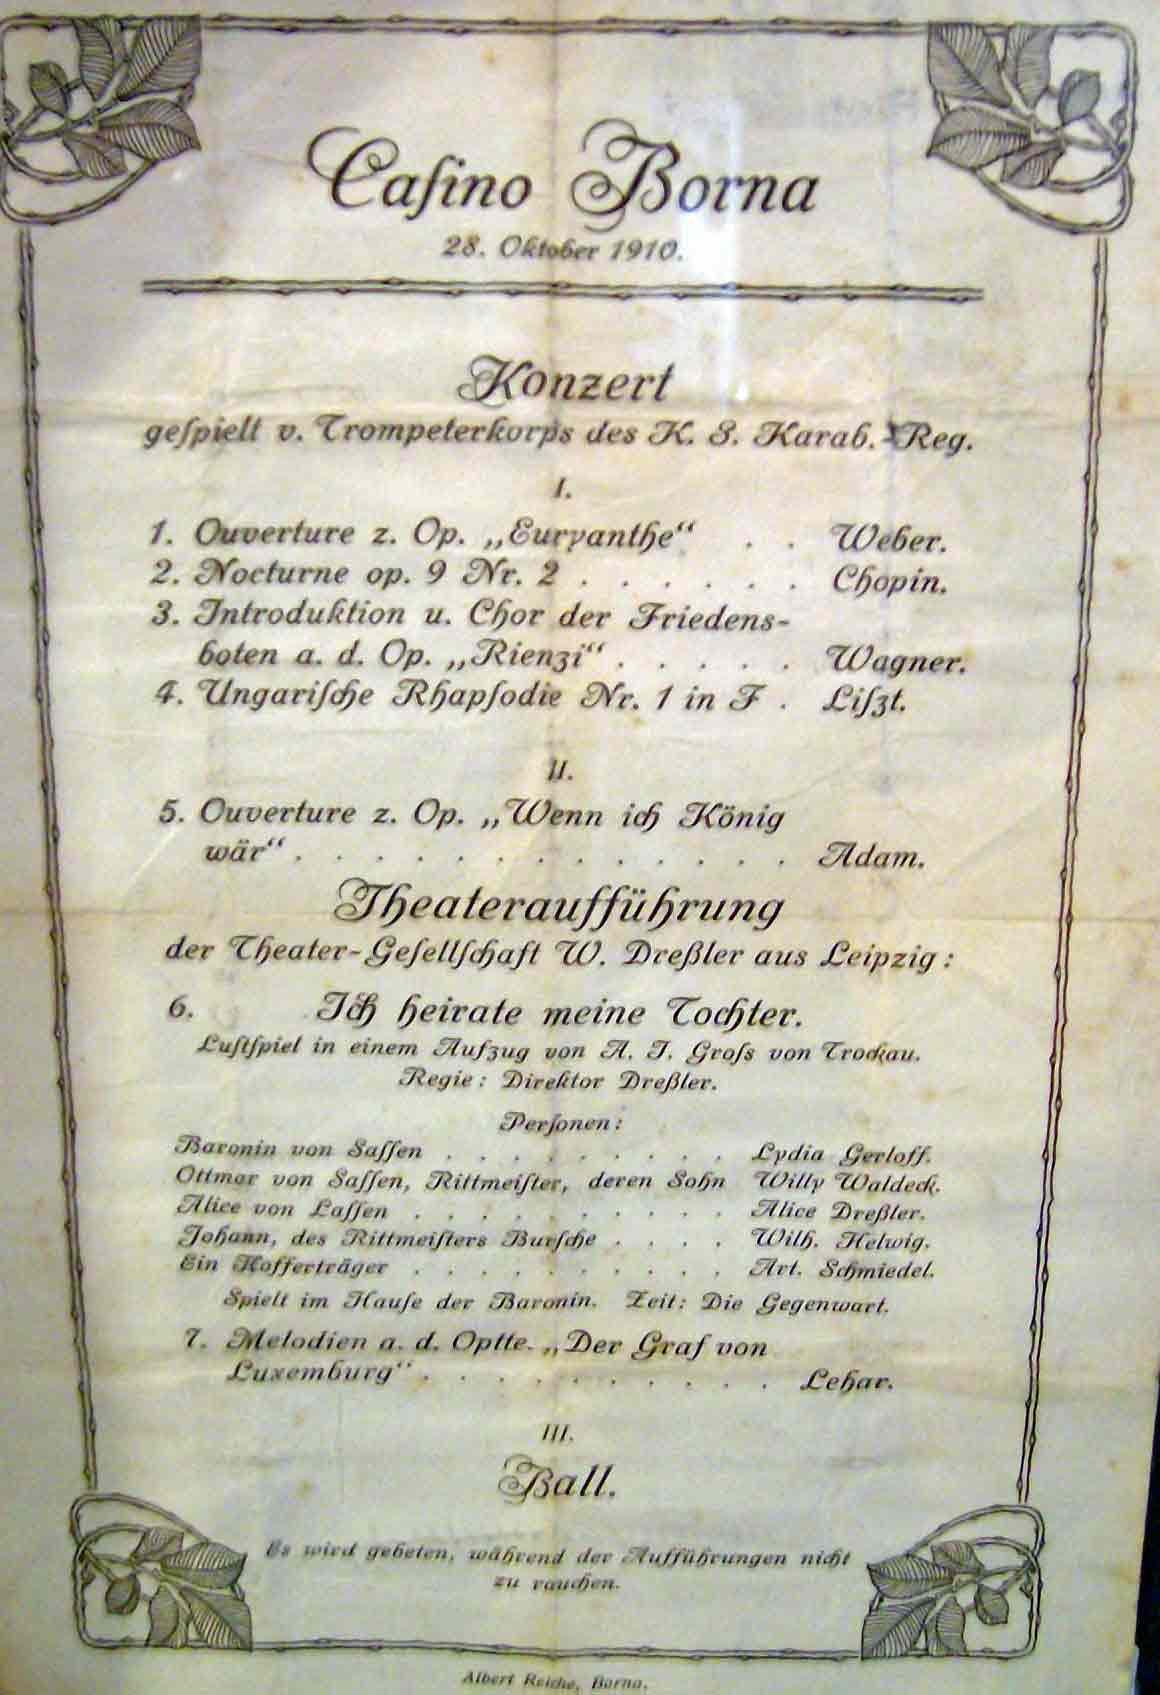 Caſino Borna
28. Oktober 1910.
Konzert
geſpielt v. Trompeterkorps des K. S. Karab.-Reg.
I.
1. Ouverture z. Op. „Euryanthe“ . . Weber.
2. Nocturne op. 9 Nr. 2 . . . . . . Chopin.
3. Introduktion u. Chor der Friedens-
boten a. d. Op. „Rienzi“ . . . . . Wagner.
4. Ungariſche Rhapſodie Nr. 1 in F . Liſzt.
II.
5. Ouverture z. Op. „Wenn ich König
wär“ . . . . . . . . . . . . . Adam.
Theateraufführung
der Theater-Geſellſchaft W. Dreßler aus Leipzig:
6. Ich heirate meine Tochter.
Luſtſpiel in einem Aufzug von A. J. Groſs von Trockau.
Regie: Direktor Dreßler.
Perſonen:
Baronin von Saſſen . . . . . . . . . Lydia Gerloff.
Ottmar von Saſſen, Rittmeiſter, deren Sohn Willy Waldeck.
Alice von Laſſen . . . . . . . . . . Alice Dreßler.
Johann, des Rittmeiſters Burſche . . . . Wilh. Helwig.
Ein Kofferträger . . . . . . . . . . Art. Schmiedel.
Spielt im Hauſe der Baronin. Zeit: Die Gegenwart.
7. Melodien a. d. Optte. „Der Graf von
Luxemburg“ . . . . . . . . . . Lehar.
III.
Ball.
Es wird gebeten, während der Aufführungen nicht
zu rauchen.
Albert Reiche, Borna.